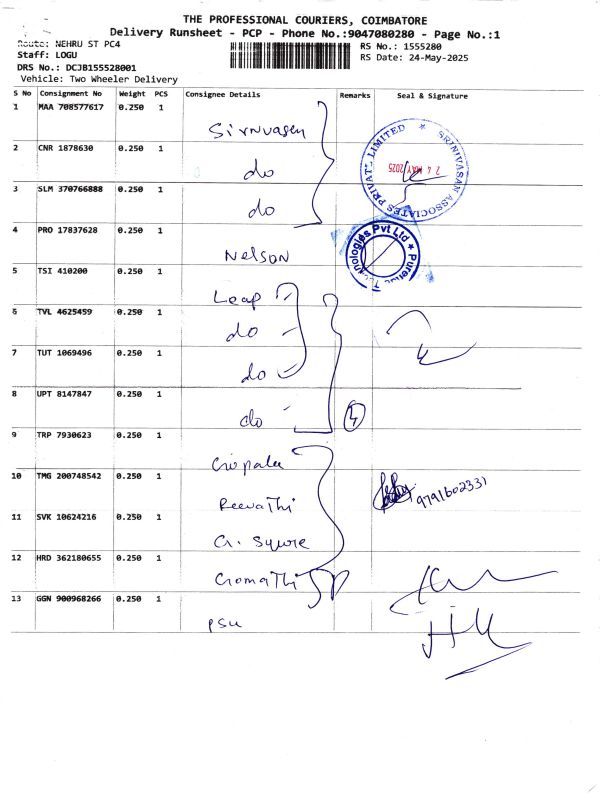 THE PROFESSIONAL COURIERS, COIMBATORE
Delivery Runsheet - PCP - Phone No.:9047080280 - Page No.:1
Route: NEHRU ST PC4
RS No.: 1555280
Staff: LOGU
RS Date: 24-May-2025
DRS No.: DCJB155528001
Vehicle: Two Wheeler Delivery
S No Consignment No Weight PCS Consignee Details Remarks Seal & Signature
1 MAA 708577617 0.250 1
Sirnvasen
2 CNR 1878630 0.250 1
do
SRINIVASAN ASSOCIATES PRIVATE LIMITED ★
24 MAY 2025
3 SLM 370766888 0.250 1
do
4 PRO 17837628 0.250 1
Nelson
Technologies Pvt Ltd ★
5 TSI 410200 0.250 1
Leap
6 TVL 4625459 0.250 1
do
7 TUT 1069496 0.250 1
do
8 UPT 8147847 0.250 1
do
4
9 TRP 7930623 0.250 1
Gopala
10 TMG 200748542 0.250 1
Reevathi
9791602331
11 SVK 10624216 0.250 1
G. Squre
12 HRD 362180655 0.250 1
Gomathi
13 GGN 900968266 0.250 1
PSU